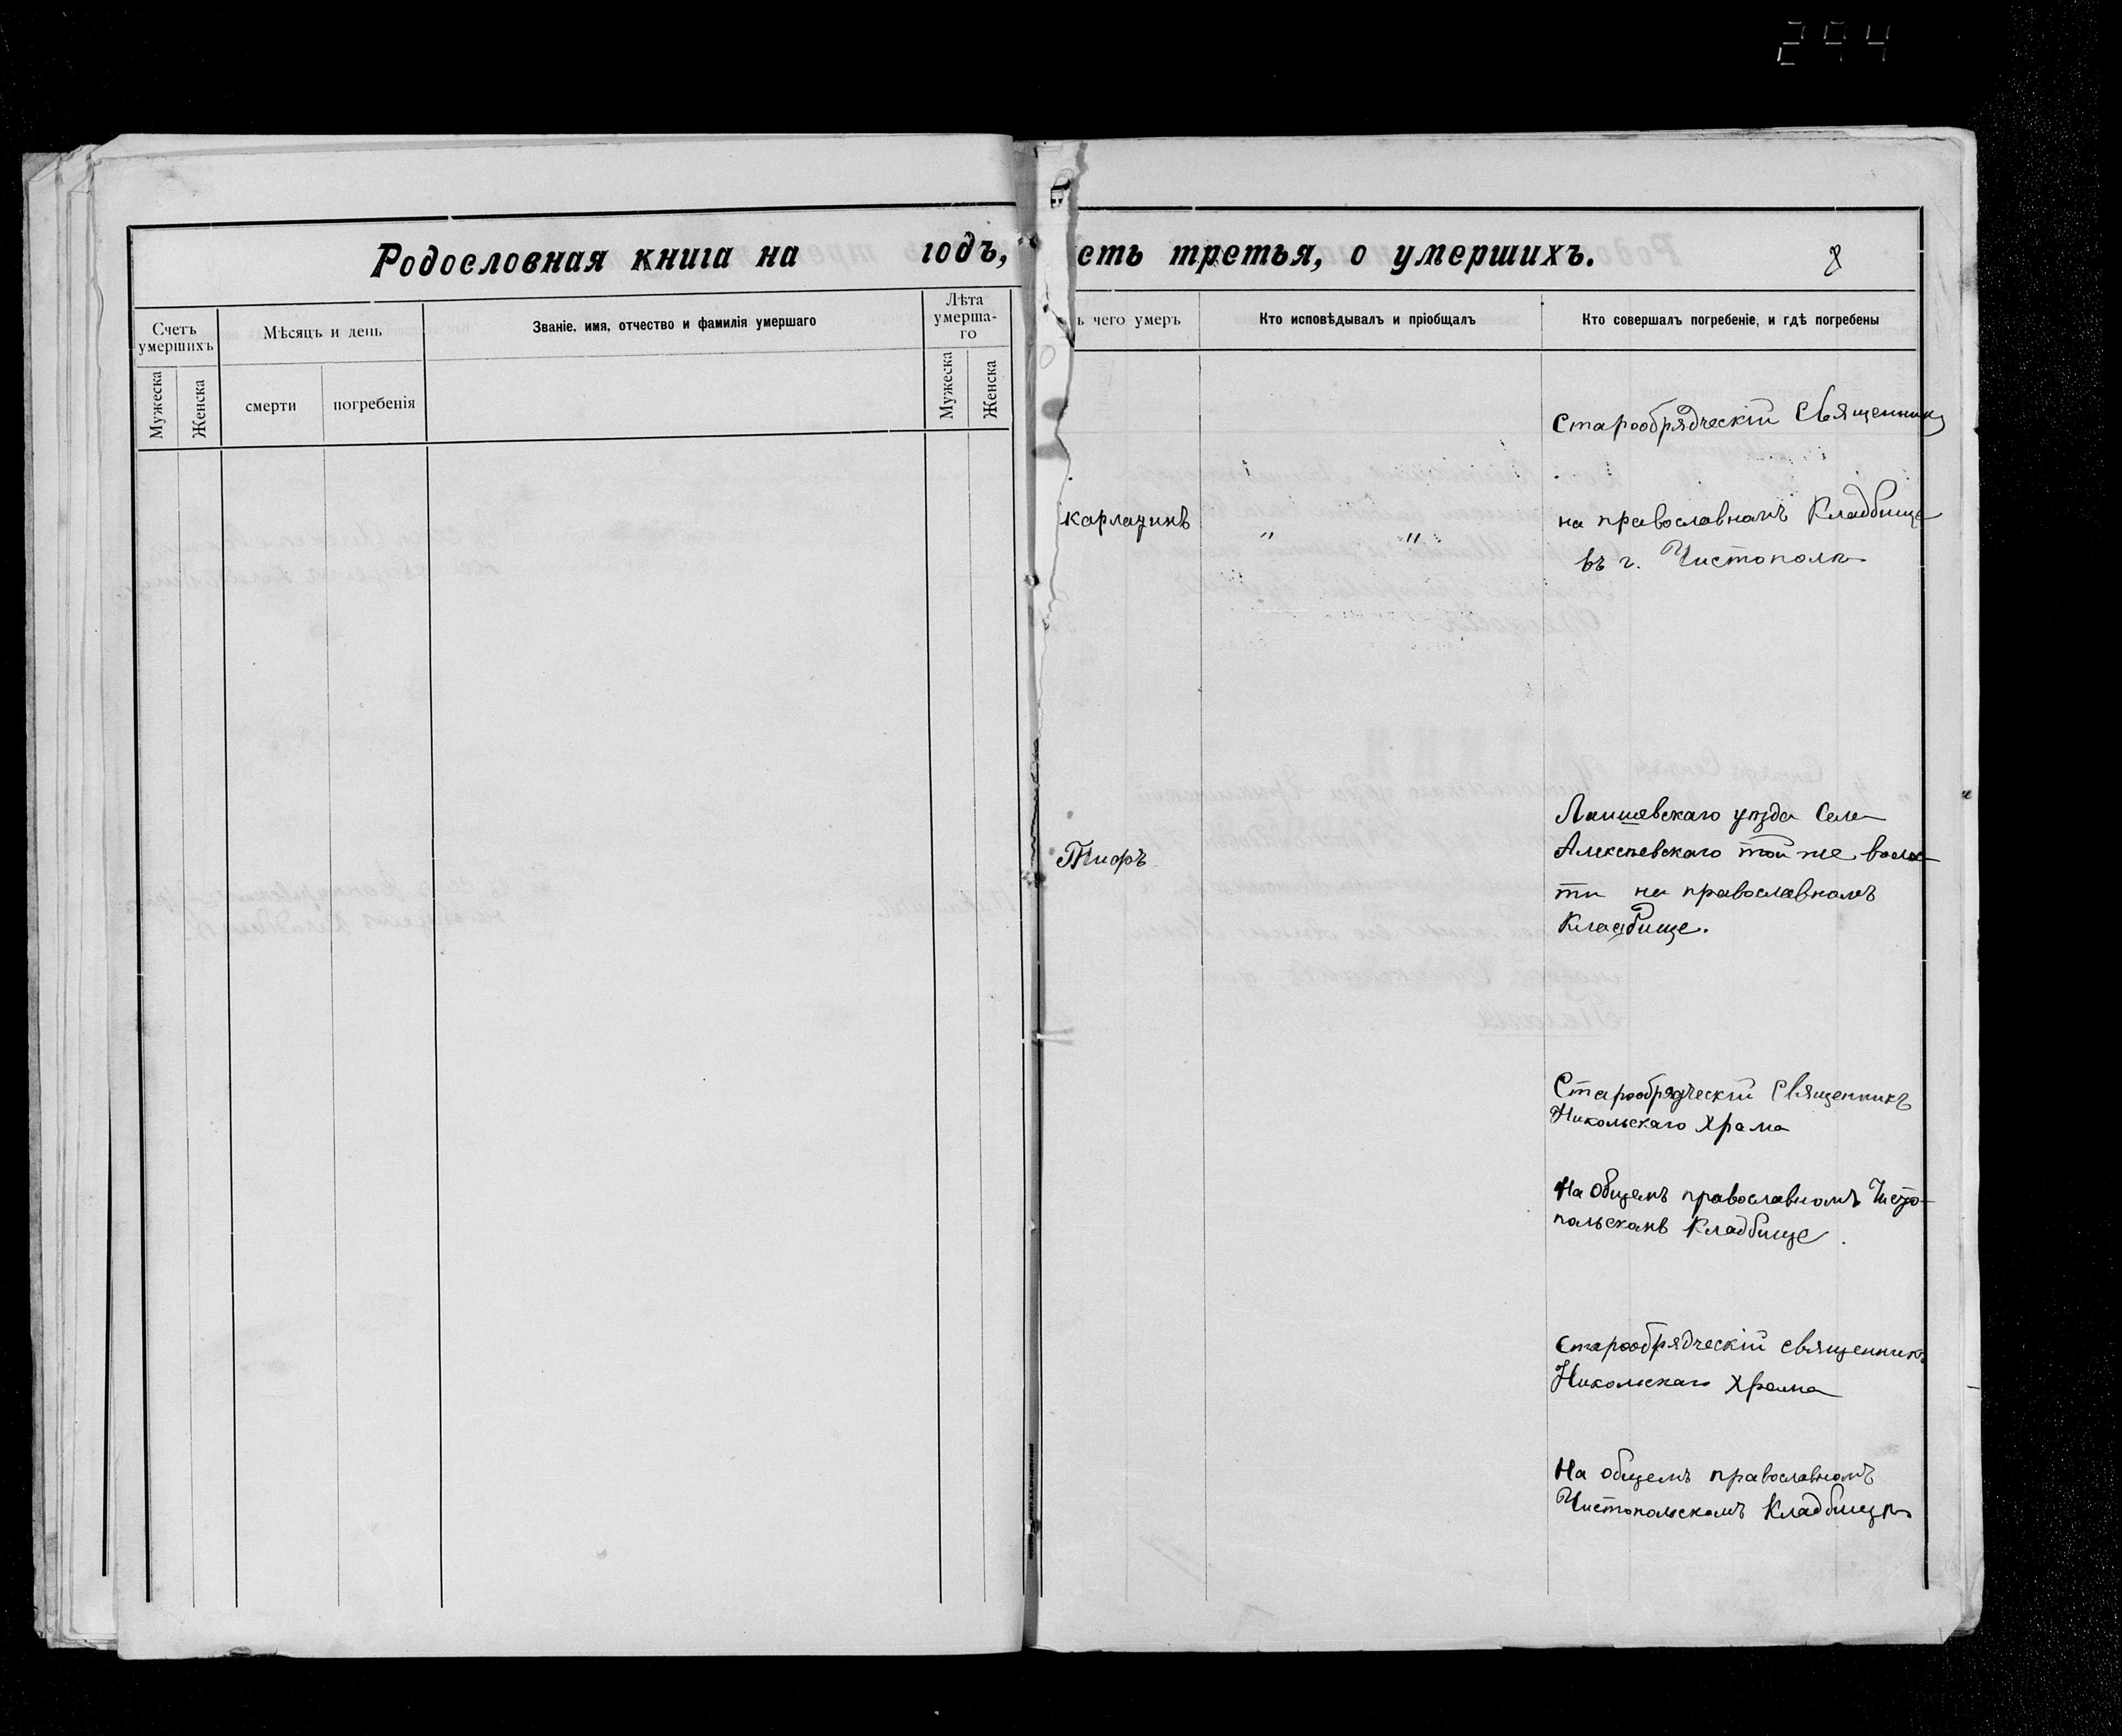 294
Родословная книга на годъ,
есть третья, о умершихъ.
8
Счетъ умершихъ
Мѣсяцъ и день
Званіе, имя, отчество и фамилія умершаго
Лѣта умерша-
го
Мужеска
Женска
смерти
погребенія
Мужеска
Женска
ъ чего умеръ
Кто исповѣдывалъ и пріобщалъ
Кто совершалъ погребеніе, и гдѣ погребены
Старообрядческій Священникъ
карлашнъ
"
"
на православномъ Кладбище
въ г. Чистополѣ
Лаишевскаго уѣзда Села
Алексѣевскаго той же волос-
Тифъ
ти на православномъ
Кладбище.
Старообрядческій Священникъ
Никольскаго Храма
На общемъ православномъ Чисто-
польскомъ Кладбище
Старообрядческій священникъ
Никольскаго Храма
На общемъ православномъ
Чистопольскомъ Кладбищѣ